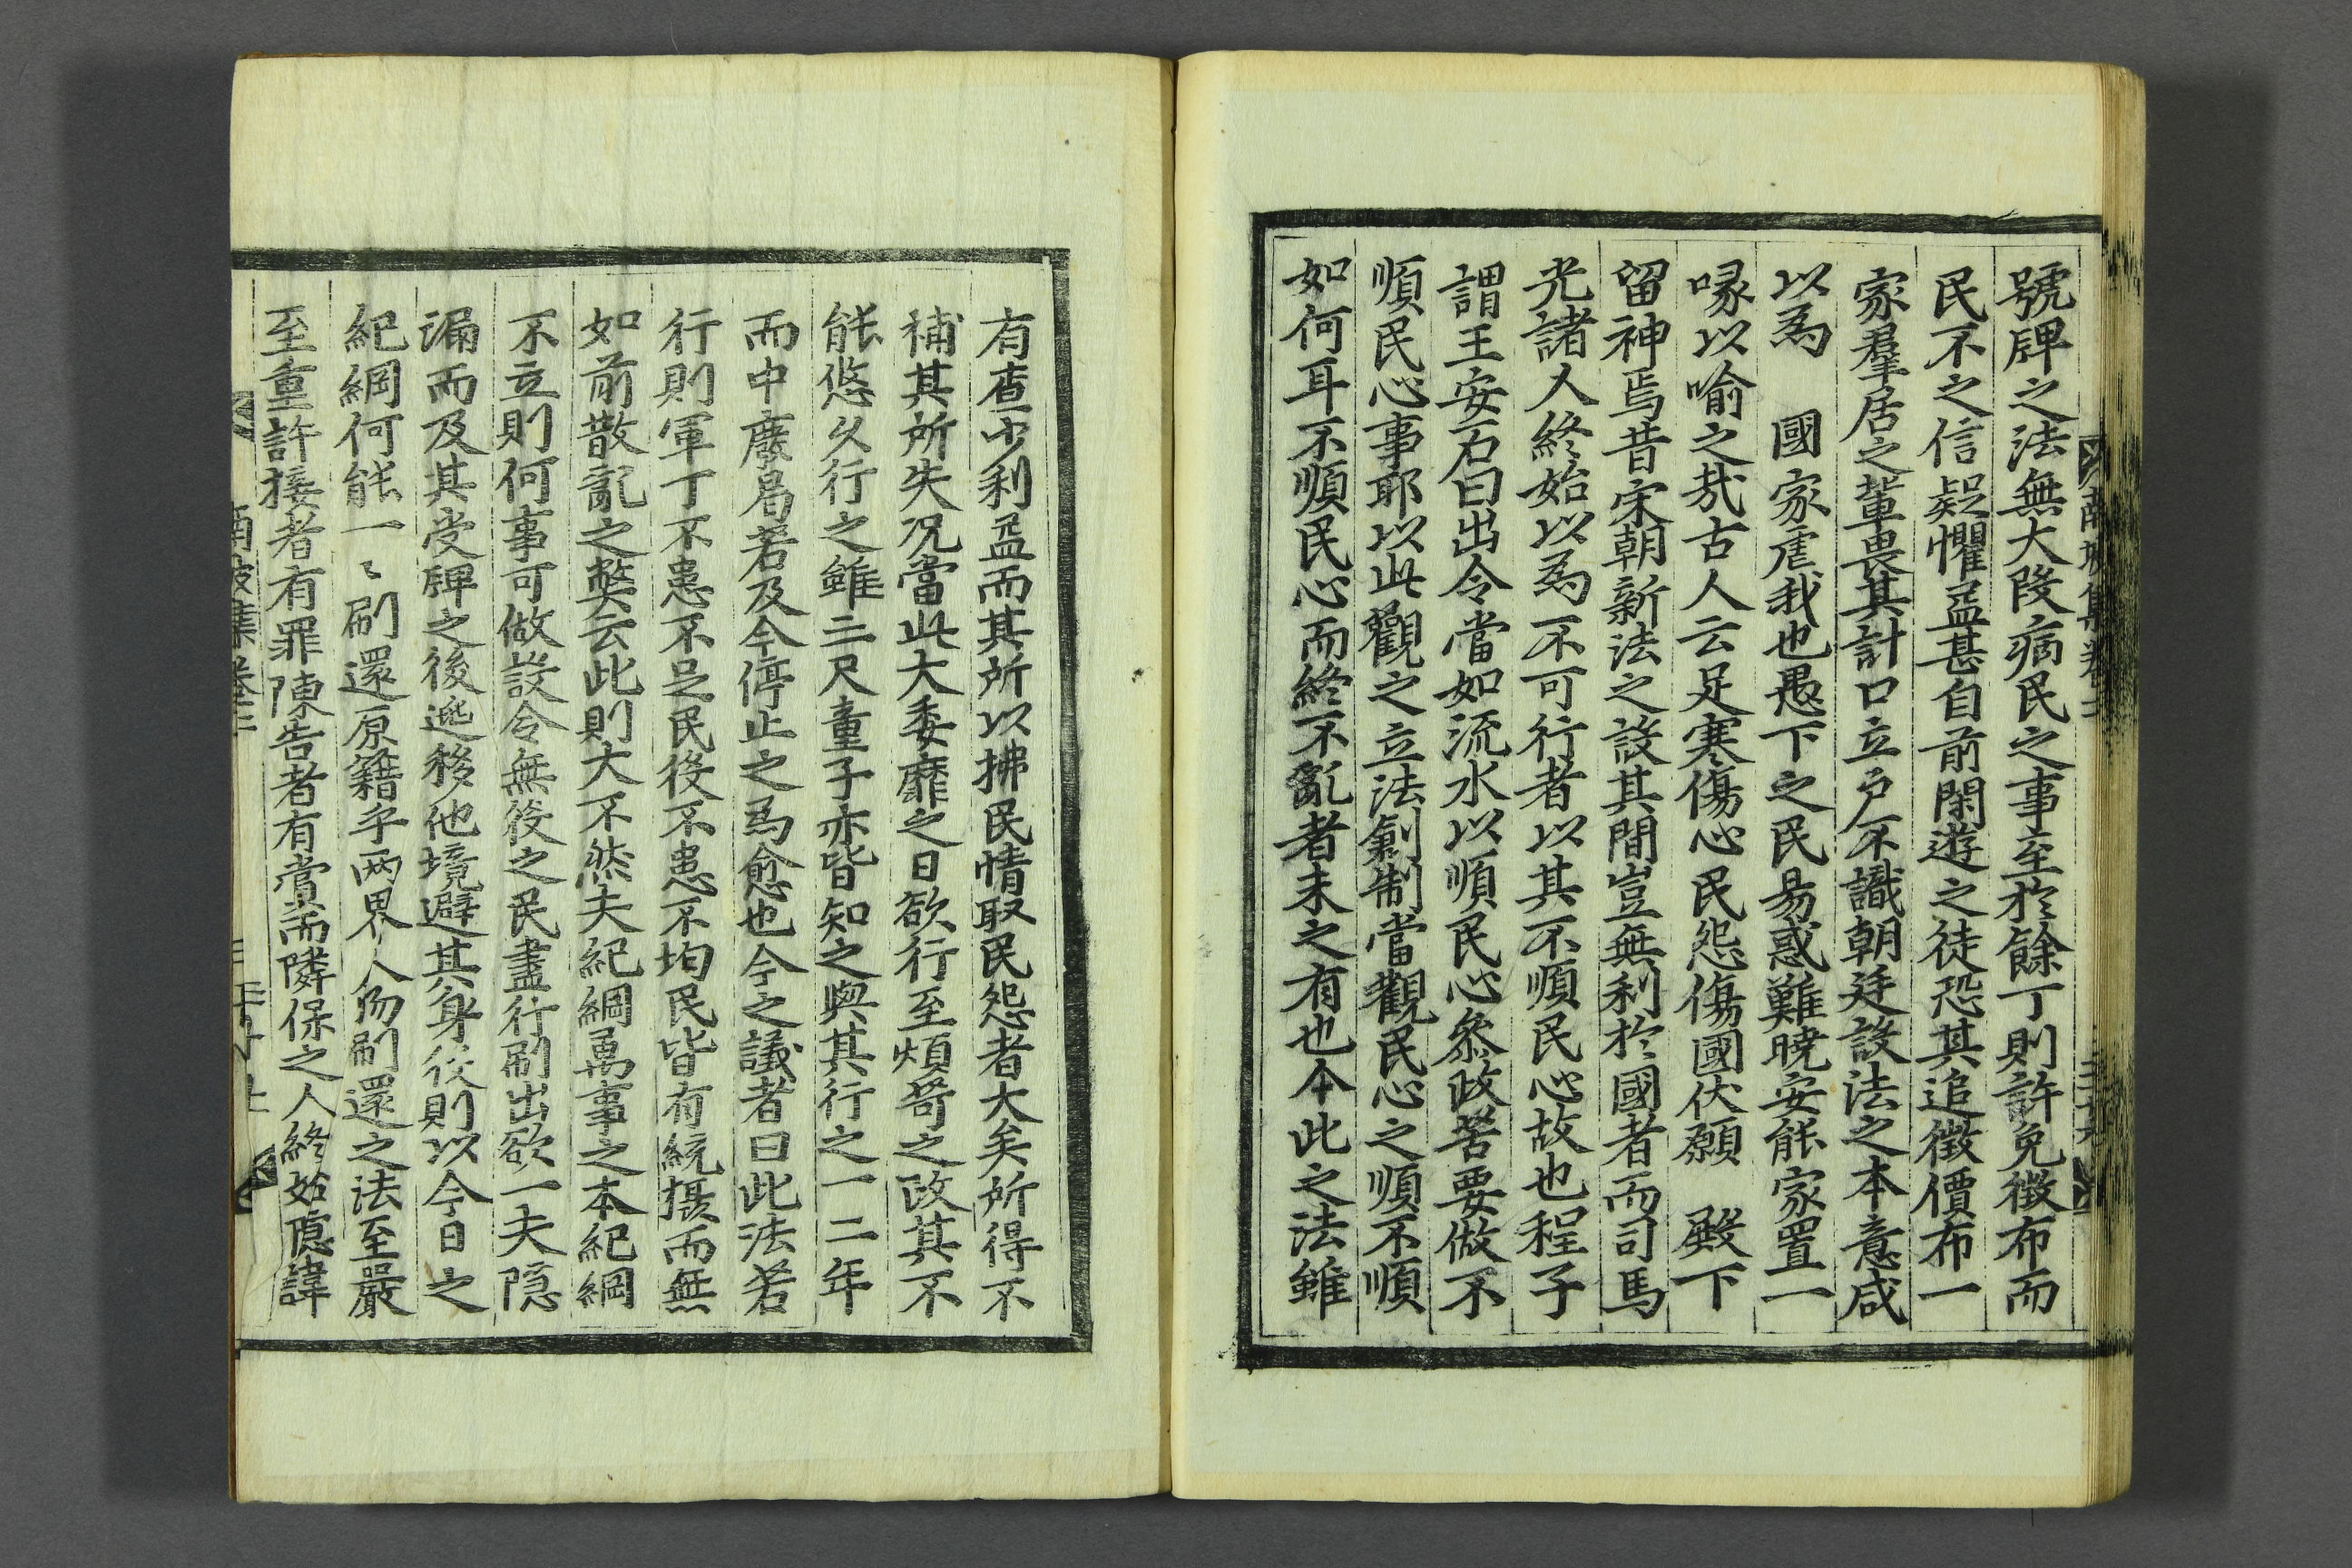 號牌之法無大段病民之事至於餘丁則許免徵布而
民不之信疑懼益甚自前閑遊之徒恐其追徵價布一
家羣居之輩畏其計口立戶不識朝廷設法之本意咸
以爲 國家虐我也愚下之民易惑難曉安能家置一
喙以喻之哉古人云足寒傷心民怨傷國伏願 殿下
留神焉昔宋朝新法之設其間豈無利於國者而司馬
光諸人終始以爲不可行者以其不順民心故也程子
謂王安石曰出令當如流水以順民心叅政苦要做不
順民心事耶以此觀之立法創制當觀民心之順不順
如何耳不順民心而終不亂者未之有也今此之法雖
有查少利益而其所以拂民情取民怨者大矣所得不
補其所失况當此大委靡之日欲行至煩苛之政其不
能悠久行之雖三尺童子亦皆知之與其行之一二年
而中廢曷若及今停止之爲愈也今之議者曰此法若
行則軍丁不患不足民役不患不均民皆有統攝而無
如前散亂之弊云此則大不然夫紀綱萬事之本紀綱
不立則何事可做設令無役之民盡行刷出欲一夫隱
漏而及其受牌之後逃移他境避其身役則以今日之
紀綱何能一〻刷還原籍乎两界人物刷還之法至嚴
至重許接者有罪陳告者有賞而隣保之人終始隱諱